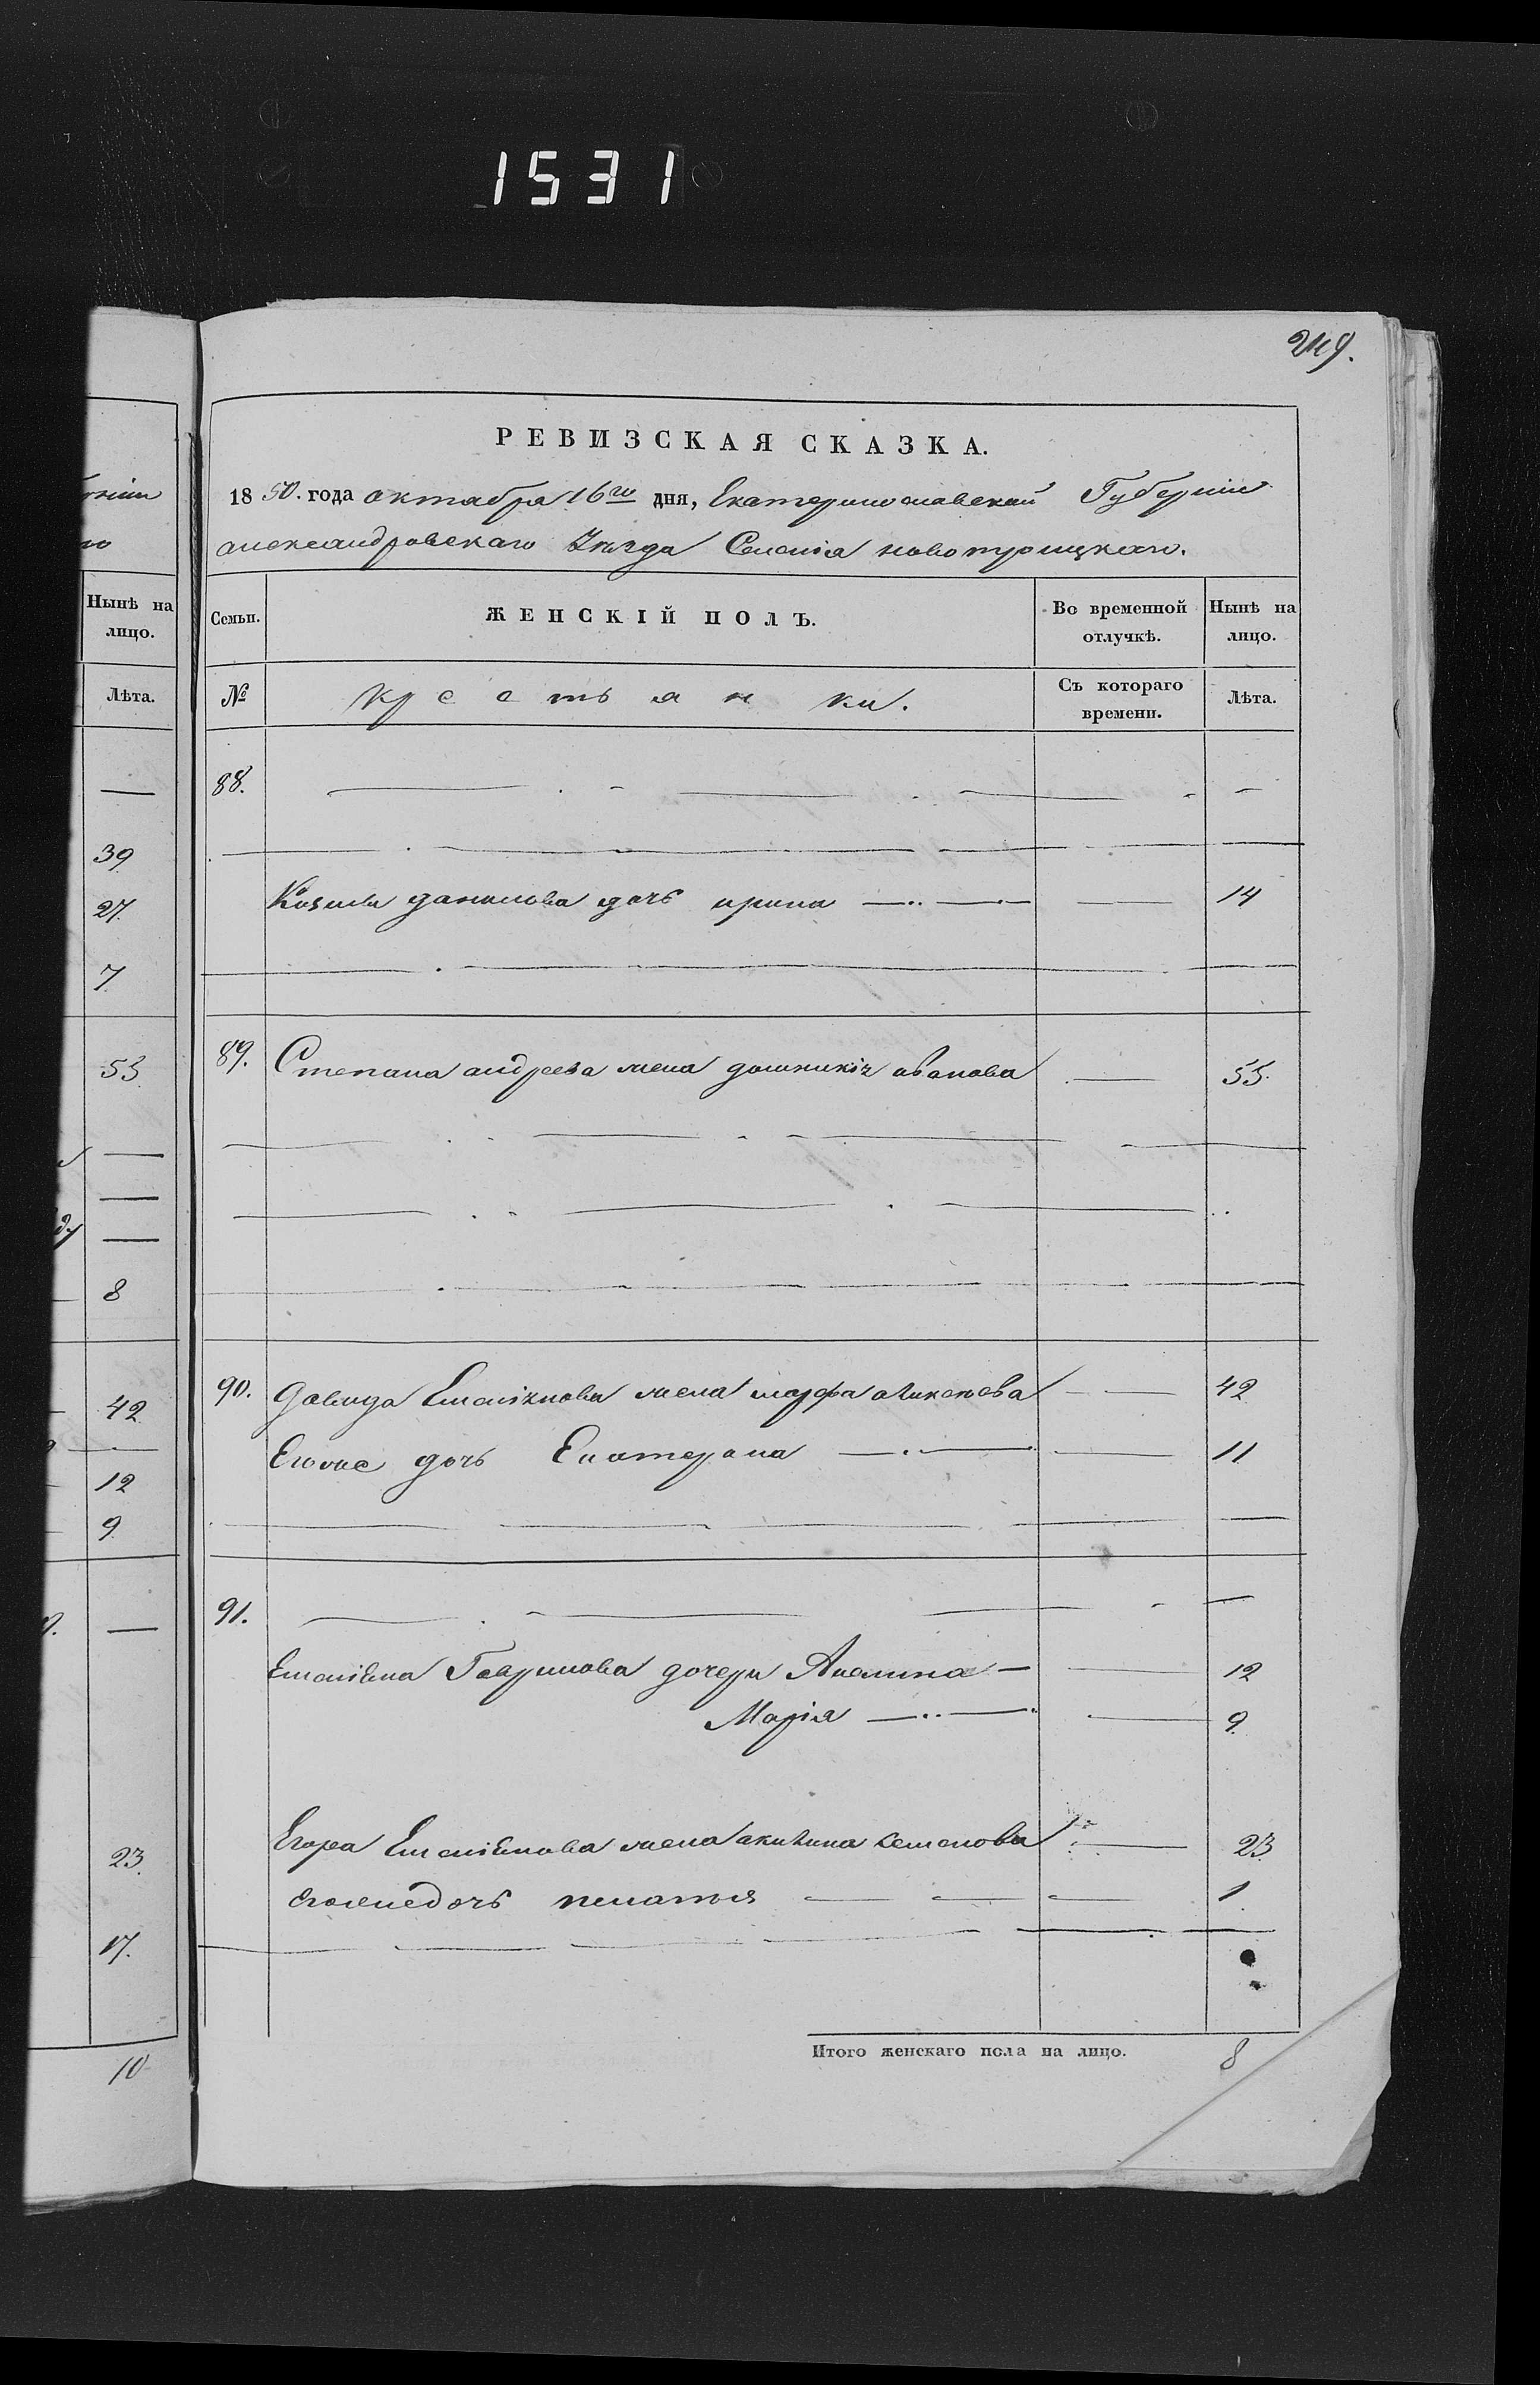 1531
249.
РЕВИЗСКАЯ СКАЗКА.
1850. года октября 16го дня, Екатеринославской Губернiи
александровскаго Уѣзда Селенiя новотроицкаго.
Нынѣ на лицо.
Семьи.
ЖЕНСКІЙ ПОЛЪ.
Во временной отлучкѣ.
Нынѣ на лицо.
Лѣта.
№
Крестьянки.
Съ котораго времени.
Лѣта.
88.
39
27 Козьмы данилова дочь ирина 14
7
53 89. Степана андреева жена домникiя иванова 55.
8
42 90. Давида Емелiянова жена марфа аликсѣева 42
Егоже дочь Екатерина 11
12
9
91.
Емелiяна Гаврилова дочери Акелина 12
Марiя 9
23 Егора Емелiянова жена акилина семенова 23
егоженедочь пелагея 1
17.
Итого женскаго пола на лицо. 8
10